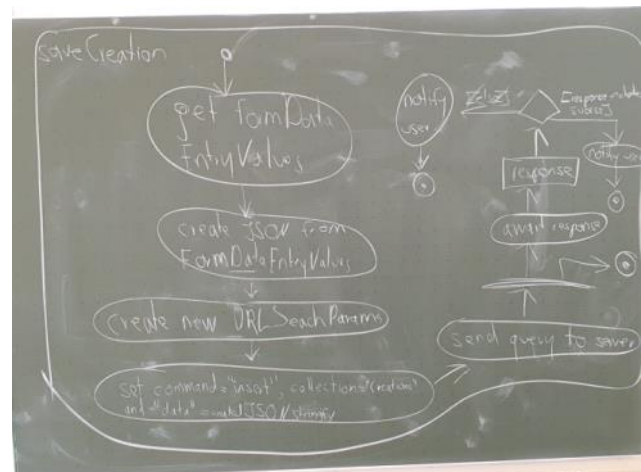 saveCreation
get FormData
EntryValues
create JSON from
FormDataEntryValues
create new URLSeachParams
set command="insert", collection="Creations"
and "data" = JSON stringify
send query to server
await response
response
[else]
[response
notify user
notify
user